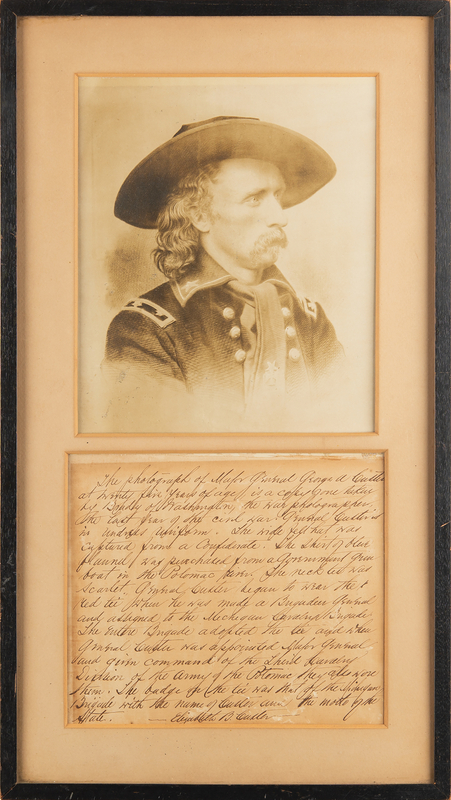 The photograph of Major General George A Custer
at twenty five years of age is a copy of one taken
by Brady of Washington, the war photographer,
the last year of the civil war. General Custer is
in undress uniform. The wide felt hat was
captured from a Confederate. The shirt of blue
flannel was purchased from a Government Gun
boat in the Potomac River. The neck tie was
scarlet. General Custer began to wear the
red tie when he was made a Brigadier General
and assigned to the Michigan Cavalry Brigade
The entire Brigade adopted the tie and when
General Custer was appointed Major General
and given command of the Third Cavalry
Division of the Army of the Potomac they also wore
them. The badge of the tie was that of the Michigan
Brigade with the name of Custer and the motto of the
State. Elizabeth B. Custer